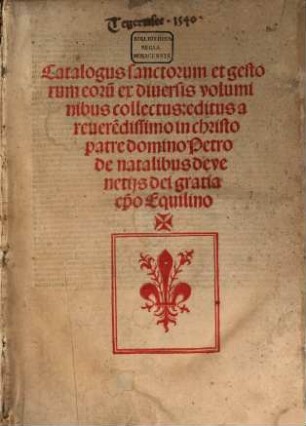 Tegernsee · 1540 ·
BIBLIOTHECA
REGIA
MONACENSIS
Catalogus sanctorum et gesto
rum eorū ex diuersis volumi
nibus collectus: editus a
reuerēdissimo in christo
patre domino Petro
de natalibus de ve
netijs dei gratia
ep̄o Equilino